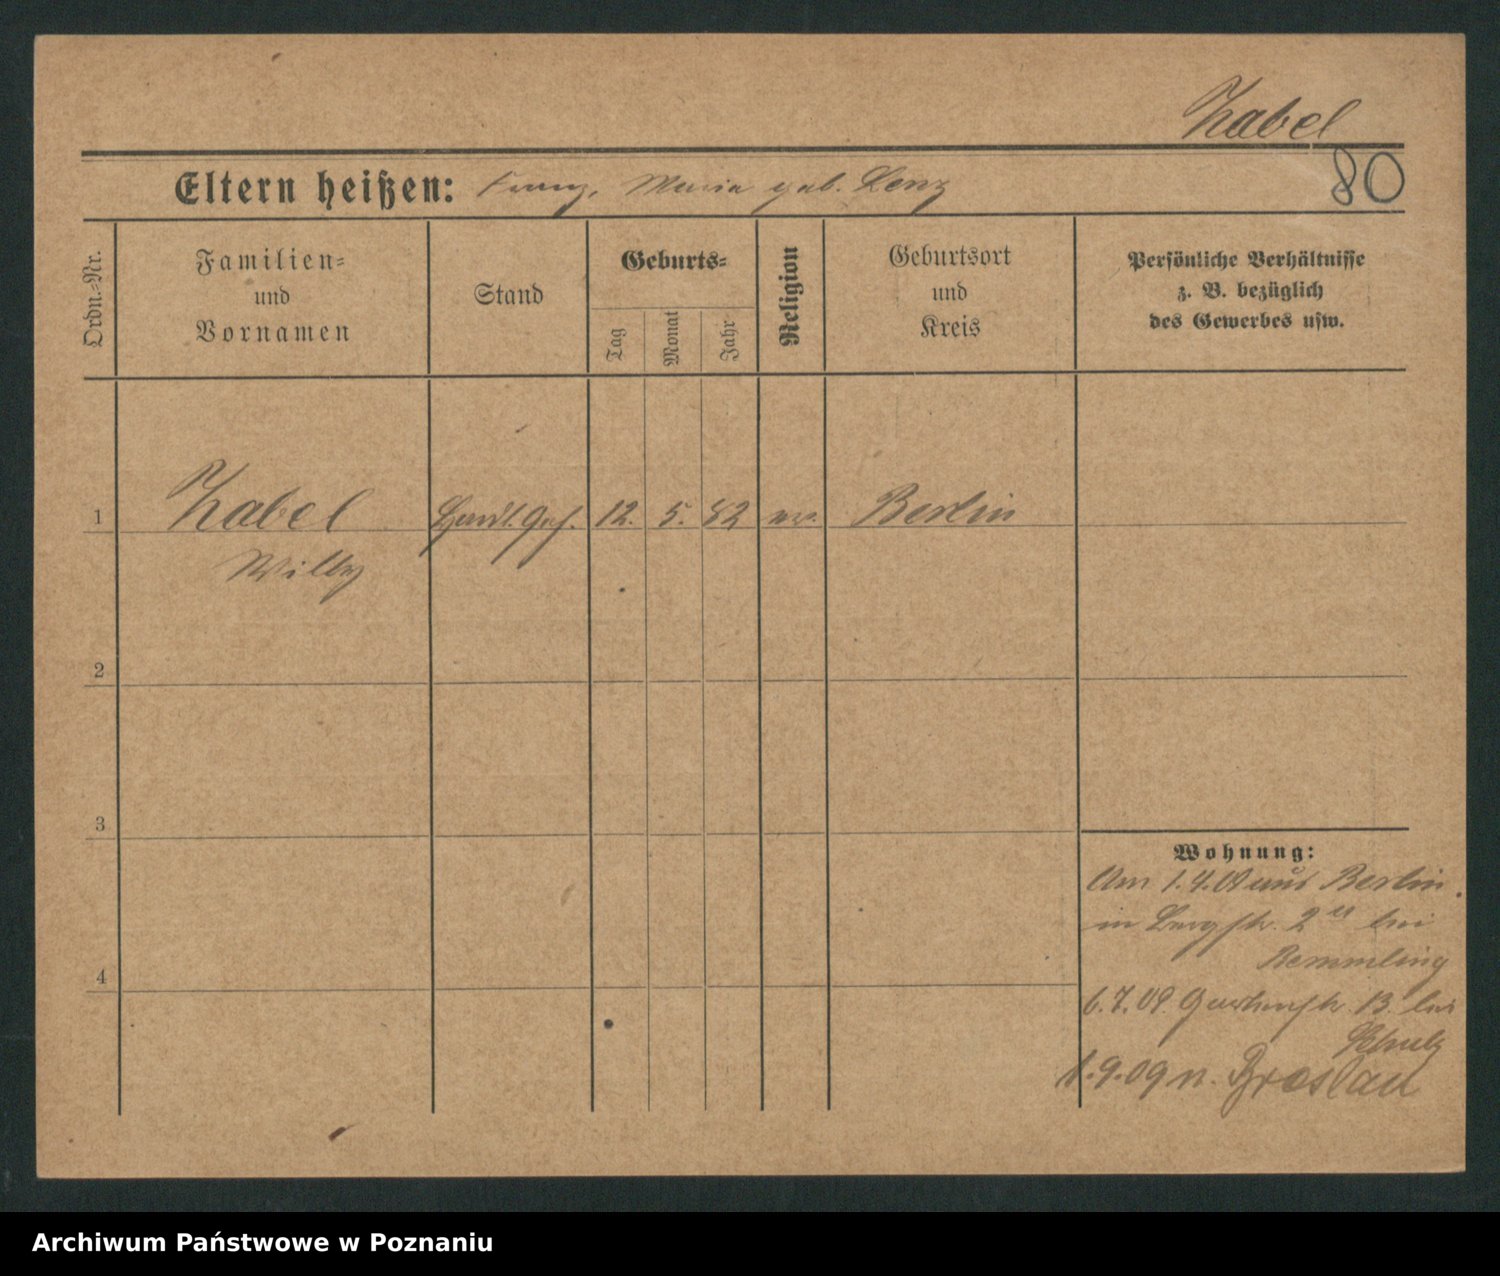 Zabel
80
Eltern heißen: Franz, Maria geb. Lenz
Ordn.-Nr.
Familien-
und
Vornamen
Stand
Geburts-
Tag
Monat
Jahr
Religion
Geburtsort
und
Kreis
Persönliche Verhältnisse
z. B. bezüglich
des Gewerbes usw.
1 Zabel Handl. Geh. 12. 5. 82 ev. Berlin
Willy
2
3
4
Wohnung:
Am 1.4.09 aus Berlin
in Bergstr. 2 bei
Remmling
6.7.09. Gartenstr. 13. bei
Schulz
1.9.09 n. Breslau
Archiwum Państwowe w Poznaniu